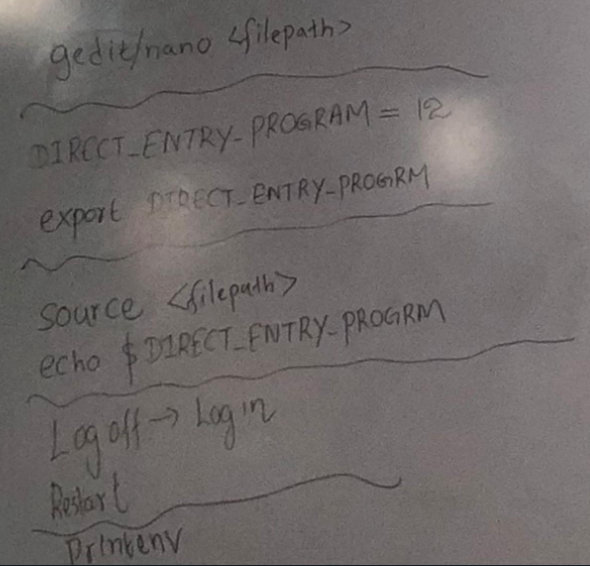 gedit/nano <filepath>
DIRECT_ENTRY_PROGRAM = 12
export DIRECT_ENTRY_PROGRM
source <filepath>
echo $DIRECT_ENTRY_PROGRM
Log off → Log in
Restart
Printenv